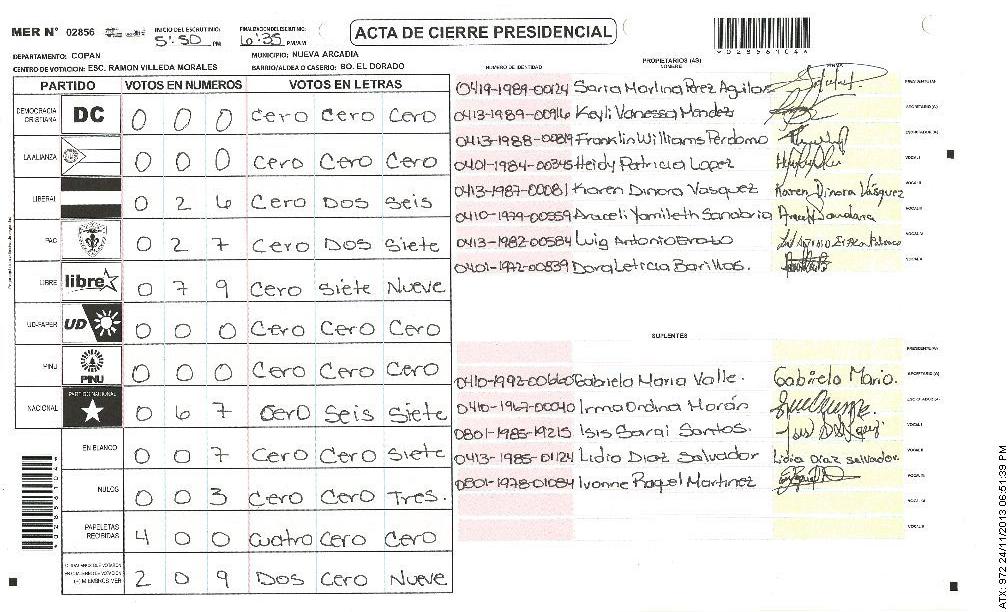 MER N° 02856
INICIO DEL ESCRUTINIO: 5:50 PM
FINALIZACION DEL ESCRUTINIO: 6:35 PM/AM
ACTA DE CIERRE PRESIDENCIAL
DEPARTAMENTO: COPAN
MUNICIPIO: NUEVA ARCADIA
CENTRO DE VOTACION: ESC. RAMON VILLEDA MORALES
BARRIO/ALDEA O CASERIO: BO. EL DORADO
PARTIDO VOTOS EN NUMEROS VOTOS EN LETRAS
DEMOCRACIA CRISTIANA DC 0 0 0 Cero Cero Cero
LA ALIANZA 0 0 0 Cero Cero Cero
LIBERAL 0 2 6 Cero Dos Seis
PAC 0 2 7 Cero Dos Siete
LIBRE libre 0 7 9 Cero Siete Nueve
UD-FAPER UD 0 0 0 Cero Cero Cero
PINU PINU 0 0 0 Cero Cero Cero
NACIONAL PARTIDO NACIONAL 0 6 7 Cero Seis Siete
EN BLANCO 0 0 7 Cero Cero Siete
NULOS 0 0 3 Cero Cero Tres.
PAPELETAS RECIBIDAS 4 0 0 Cuatro Cero Cero
2 0 9 Dos Cero Nueve
PROPIETARIOS (AS)
NUMERO DE IDENTIDAD NOMBRE FIRMA
0419-1989-00124 Saria Marlina Perez Aguilar PRESIDENTE(A)
0413-1989-00916 Keyli Vanessa Mendez SECRETARIO(A)
0413-1988-00819 Franklin Williams Perdomo ESCRUTADOR(A)
0401-1984-00345 Heidy Patricia Lopez VOCAL I
0413-1987-00081 Karen Dinora Vasquez Karen Dinora Vásquez VOCAL II
0410-1979-00559 Araceli Yamileth Sanabria VOCAL III
0413-1982-00584 Luis Antonio VOCAL IV
0401-1972-00839 Dora Leticia Barillas. VOCAL V
SUPLENTES
PRESIDENTE(A)
0410-1992-00660 Gabriela Maria Valle. Gabriela Maria. SECRETARIO(A)
0410-1967-00040 Irma Ondina Morán ESCRUTADOR(A)
0801-1985-19215 Isis Sarai Santos. VOCAL I
0413-1985-01124 Lidia Diaz Salvador Lidia Diaz Salvador. VOCAL II
0801-1978-01084 Ivonne Raquel Martinez VOCAL III
VOCAL IV
VOCAL V
ATX: 972 24/11/2013 06:51:39 PM